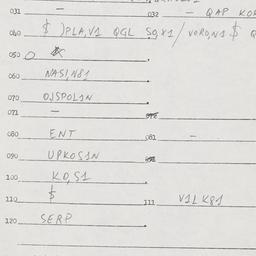 031 — 032 — QAP KOR
040 $ )PLA,V1 QGL SO,X1/VORO,N1 $ Q
050
060 NASI,N81
070 OJSPOL1N
071 —
080 ENT 081 —
090 UPKOS1N
100 KO,S1
110 $ 111 V1LK81
120 SERP